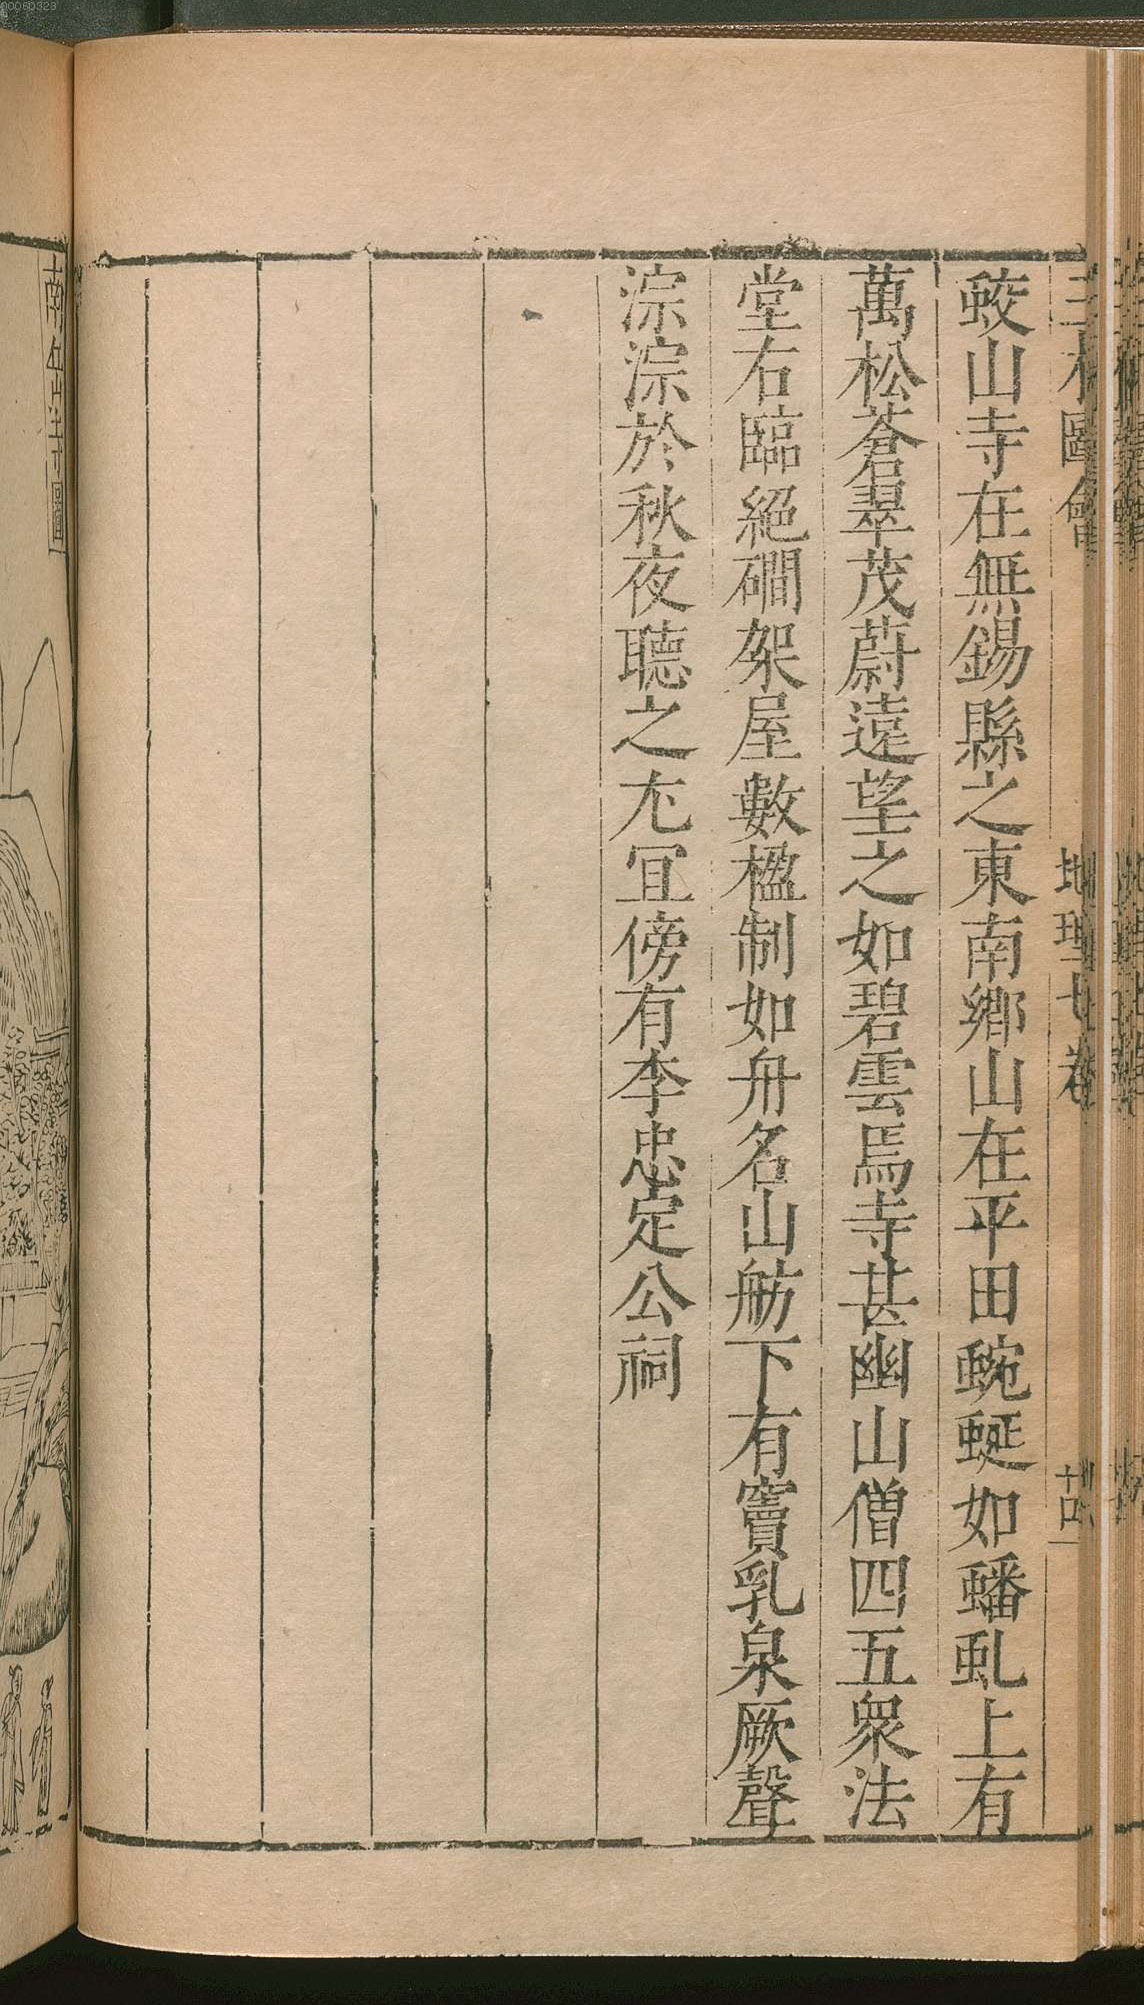 蛟山寺在無錫縣之東南鄉山在平田蜿蜒如蟠虬上有
萬松蒼翠茂蔚遠望之如碧雲焉寺甚幽山僧四五衆法
堂右臨絕磵架屋數楹制如舟名山舫下有竇乳泉厥聲
淙淙於秋夜聽之尢宜傍有李忠定公祠
三才圖會
地理七卷